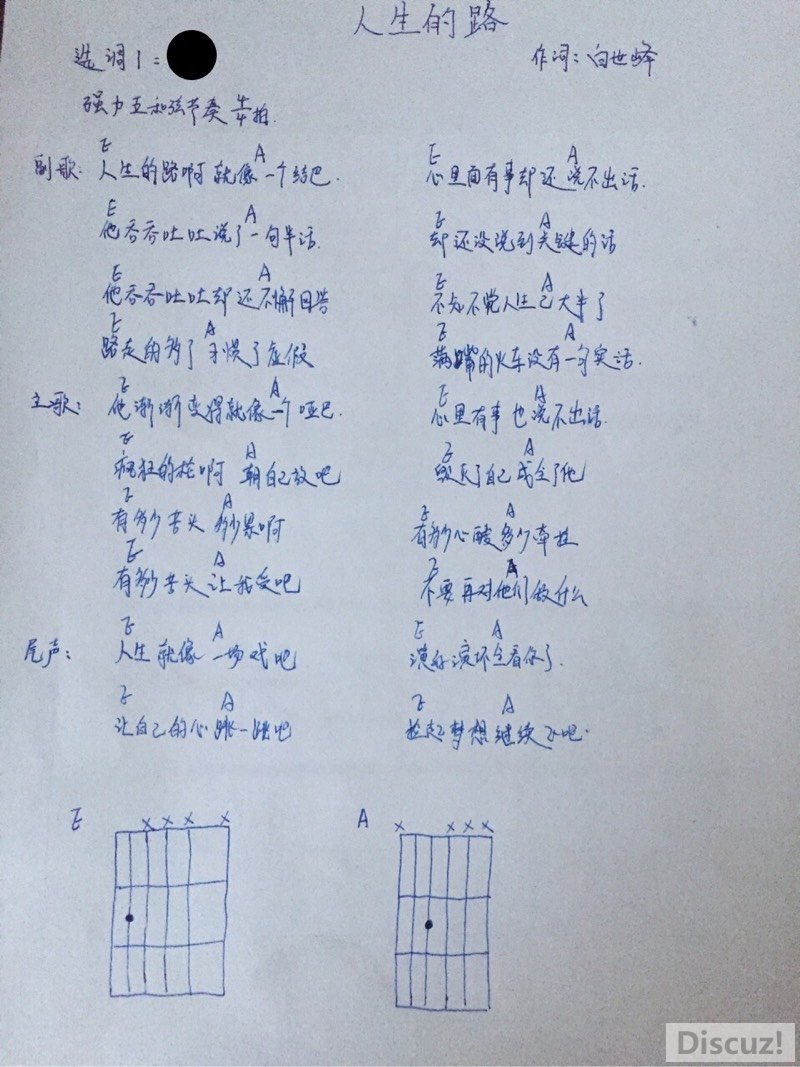 人生的路
选调1：
作词：白世峰
强力五和弦节奏 4/4拍.
E A E A
副歌：人生的路啊就像一个结巴. 心里面有事却还说不出话.
E A E A
他吞吞吐吐说了一句半话 却还没说到关键的话
E A E A
他吞吞吐吐却还不解回答 不知不觉人生已大半了
E A E A
路走的多了 习惯了虚假 满嘴的火车没有一句实话.
E A E A
主歌：他渐渐变得就像一个哑巴. 心里有事也说不出话.
E A E A
疯狂的枪啊 朝自己放吧 了自己成全了他
E A E A
有多少苦头 多少累啊 有多少心酸多少牵挂
E A E A
有多少苦头让我受吧 不要再对他们做什么
E A E A
尾声：人生就像一场戏吧 演好演坏全看你了.
E A E A
让自己的心跳一跳吧 梦想继续飞吧.
E × × × ×
A × × × ×
Discuz!